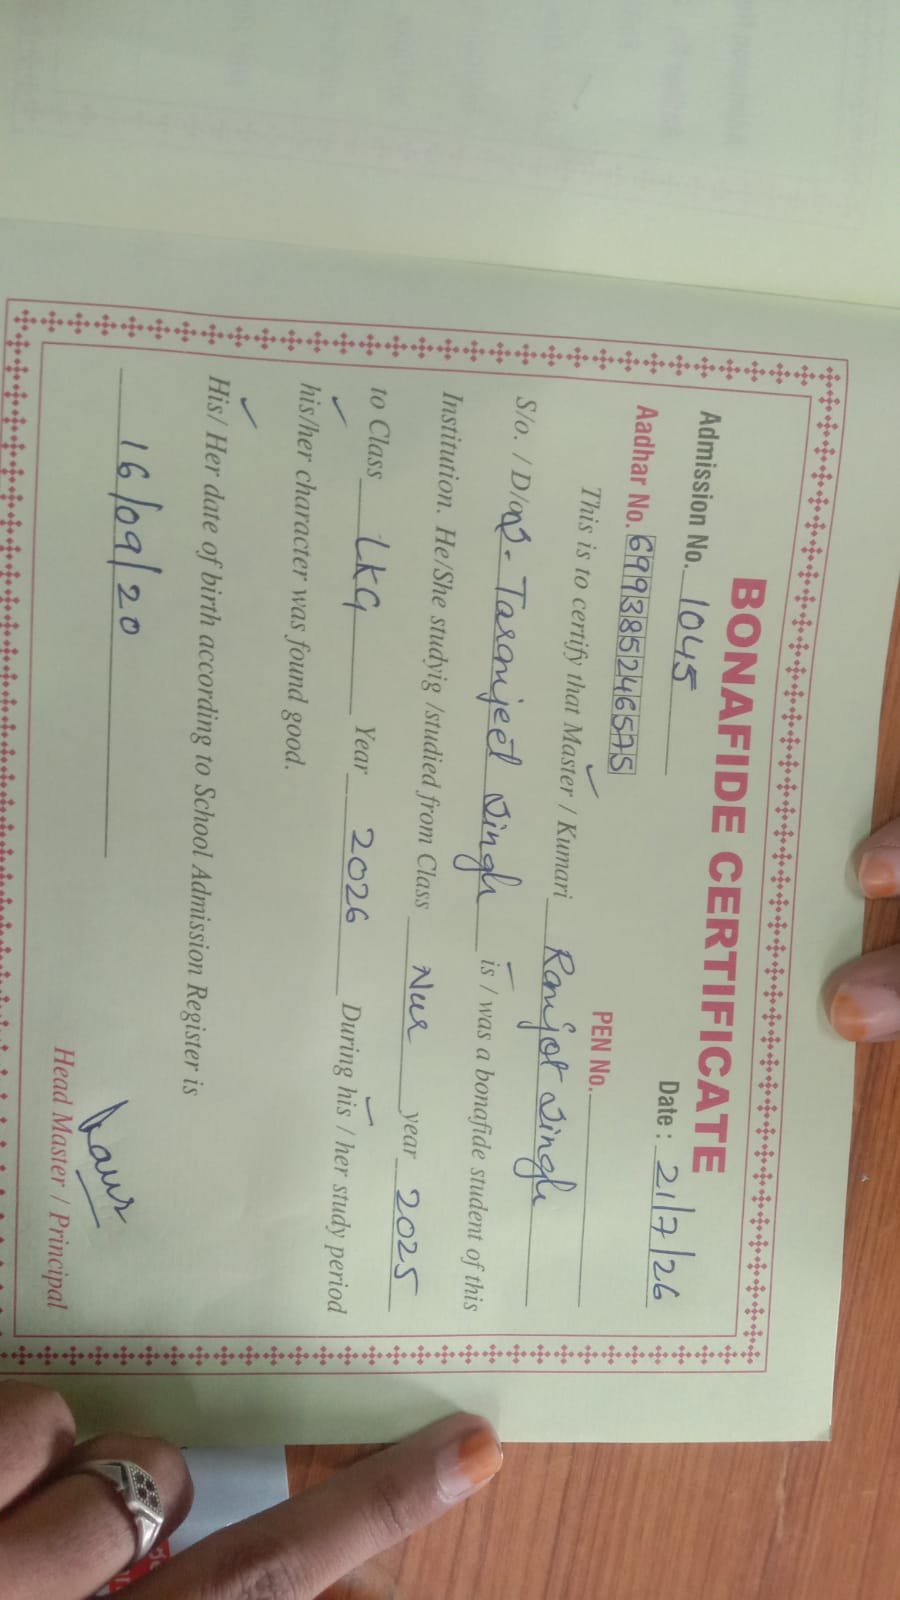 BONAFIDE CERTIFICATE
Admission No. 1045 Date : 21/7/26
Aadhar No. 699385246575 PEN No.
This is to certify that Master / Kumari Ramjot Singh
S/o. / D/o S. Taranjeet Singh is / was a bonafide student of this
Institution. He/She studyig /studied from Class Nur year 2025
to Class LKG Year 2026 During his / her study period
his/her character was found good.
His/ Her date of birth according to School Admission Register is
16/09/20
Kaur
Head Master / Principal